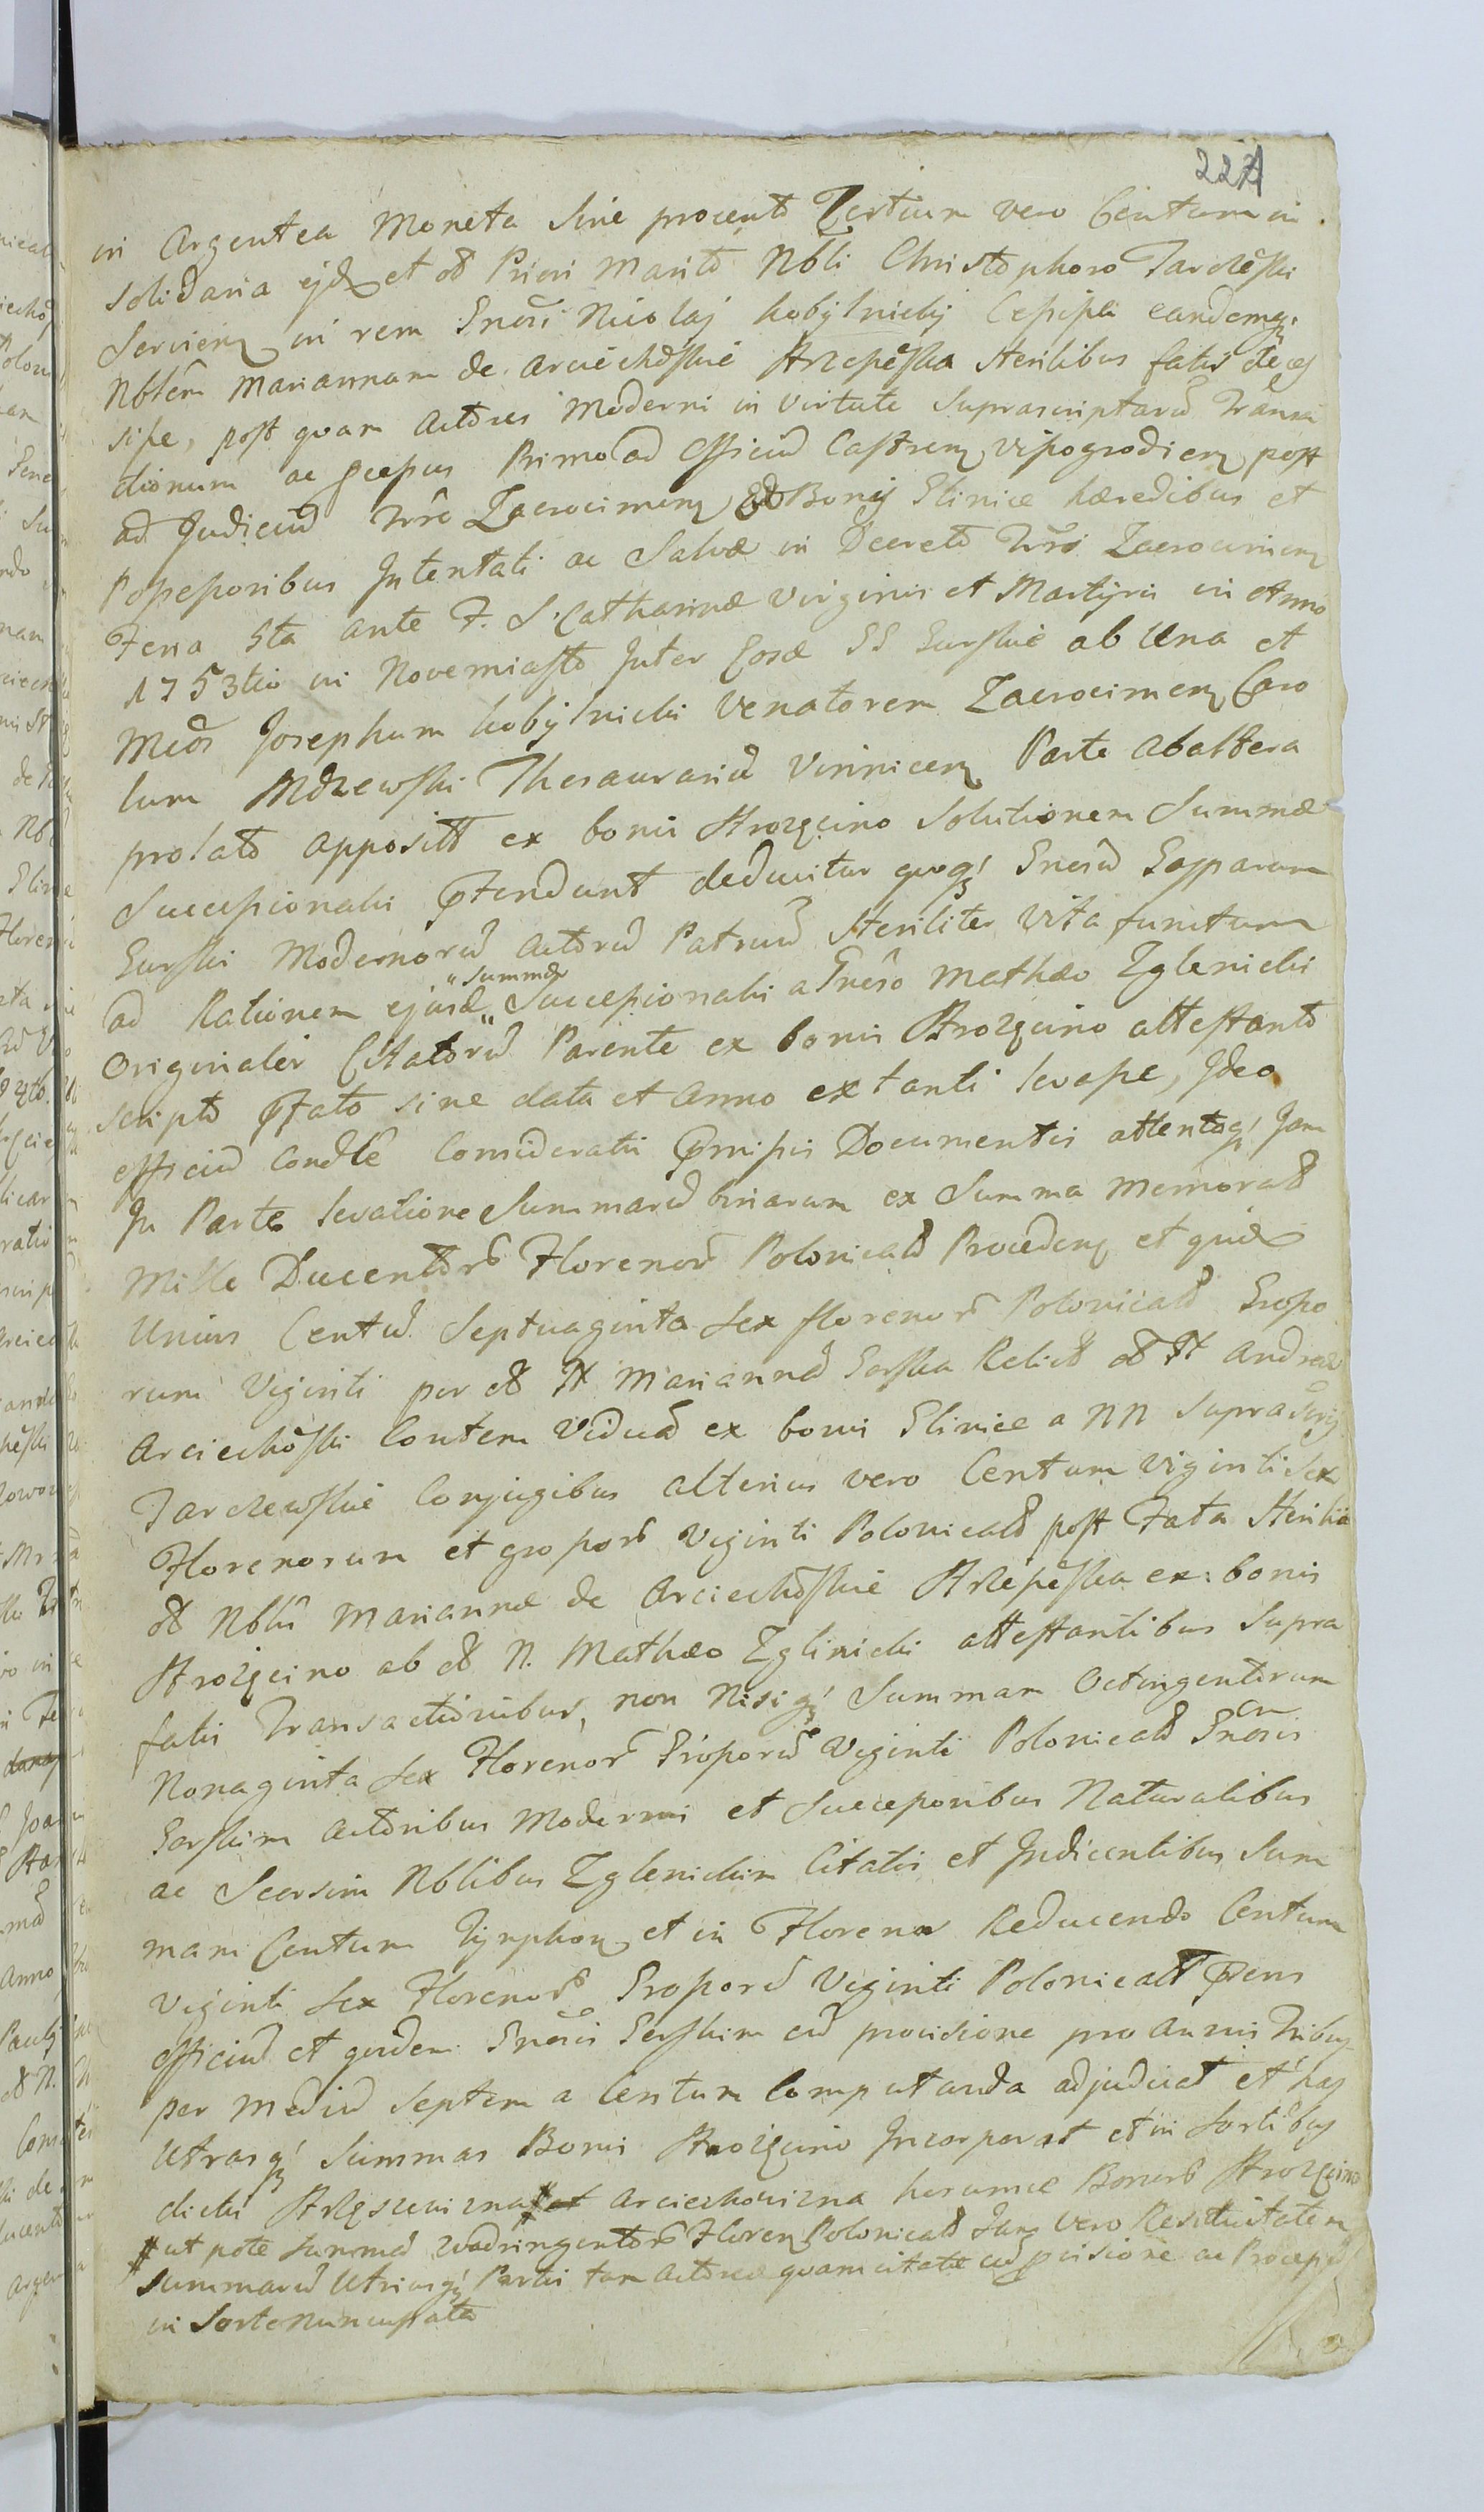 224
in Argentea Moneta sine procento Tertium vero Centum in
solidaria ejd et olt Priori Marito Nbli Christophoro Tarczeski
Servien in rem Gnosi Nicolaj Kobylnickij Cessisse eandemq
Nblem Mariannam de Arciechoskie Strzeszeska sterilibus fatis deces
sisse, post quam Actores Moderni in virtute suprascriptaru Transa
ctionum ac Primo ad Officiu Castren Vissogrodien post
ad Judiciu Trre Zacrocimen Bonij Glinice hæredibus et
Possessoribus Intentati ac Salvæ in Decreto Trris Zacrocimen
Feria 5ta ante F. S. Catharinæ Virginis et Martyris in Anno
1753tio in Novemiasto Inter Gurskie ab Una et
Mcos Josephum Kobylnicki Venatorem Zacrocimen Caro
lum Mdzewski Thesaurariu Vinnicen Parte ab altera
prolato appositt ex bonis Strozęcino solutionem Summæ
Successionalis prtendunt deducitur quoq Gnosu Gasparum
Gurski Modernoru Actoru Patruu steriliter vita functum
ad Rationem ejusd „ Summæ Successionalis a Gnoso Mathæo Zglenicki
Originalis Citatoru Parente ex bonis Strozęcino attestanto
scripto prfato sine data et Anno extanti levasse, Ideo
officiu Condle Consideratis prmissis Documentis attentaq Jam
In Parte levatione Summaru binarum ex Summa memorat
Mille Ducentor Florenor Polonicalu Proceden et quid
Unius Centu Septuaginta Sex florenor Polonicaliu Grosso
rum Viginti per olt N Marianna Gorska Relict olt N Andreæ
Arciechoski Contem Viduâ ex bonis Glinice a NN Suprascrip
Tarczewskie Conjugibus alterius vero Centum viginti Sex
Florenorum et grossor Viginti Polonicaliu post Fata sterilia
olt Nblis Mariannæ de Arciechoskie Strzeszeska ex bonis
Strozęcino ab olt N. Mathæo Zglinicki attestantibus Supra
fatis Transactionibus, non nisi q Summam Octingentorum
Nonaginta Sex Florenor Grossoru Viginti Polonicaliu Gnosis
Gorskim Actoribus Modernis et Successoribus Naturalibus
ac Seorsim Nblibus Zglenickim Citatis et Indicentibus Sum
mam Centum Tynphon et in Florenor Reducendo Centum
viginti Sex Florenor Grossoru Viginti Polonicalt prsens
officiu et quidem Gnosis Gorskim cu provisione pro annis Tribus
per mediu Septem a Centum Computanda adjudicat et has
Utrasq Summas Bonis Strozęcino Incorporat et in Sortibus
dictis Strzęszewizna et Arciechowizna harumce Bonoru Strozęcino
# ut pote Summa Quadringentor Floren Polonicaliu Jam vero Restitutatem
Summaru Utriusq Partis tam Actoreæ quam citatæ cu pvisione ac Process
in Sorte nuncupata